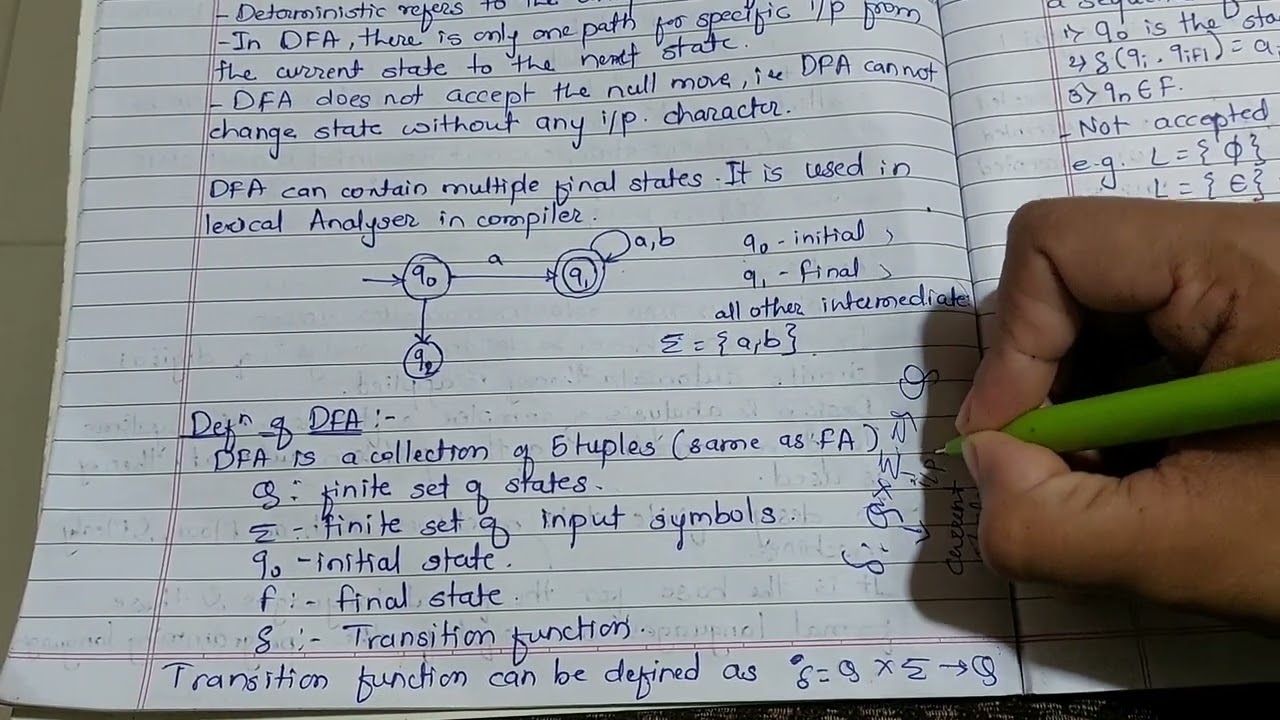 - Deterministic refers to the
- In DFA, there is only one path for specific i/p from
the current state to the next state.
- DFA does not accept the null move, i.e DFA cannot
change state without any i/p. character.
DFA can contain multiple final states. It is used in
lexical Analyser in compiler.
q0 a q1 a,b
q2
q0 - initial,
q1 - final,
all other intermediate
Σ = {a,b}
Defn of DFA :-
DFA is a collection of 5 tuples (same as FA)
Q : finite set of states.
Σ - finite set of input symbols.
q0 - initial state.
F :- final state.
δ :- Transition function.
Transition function can be defined as δ = Q × Σ → Q
δ: Q × Σ → Q
i/p
1> q0 is the sta
2> δ(qi, qi+1) = a
3> qn ∈ F.
- Not accepted
e.g. L = {ϕ}
L = {ϵ}